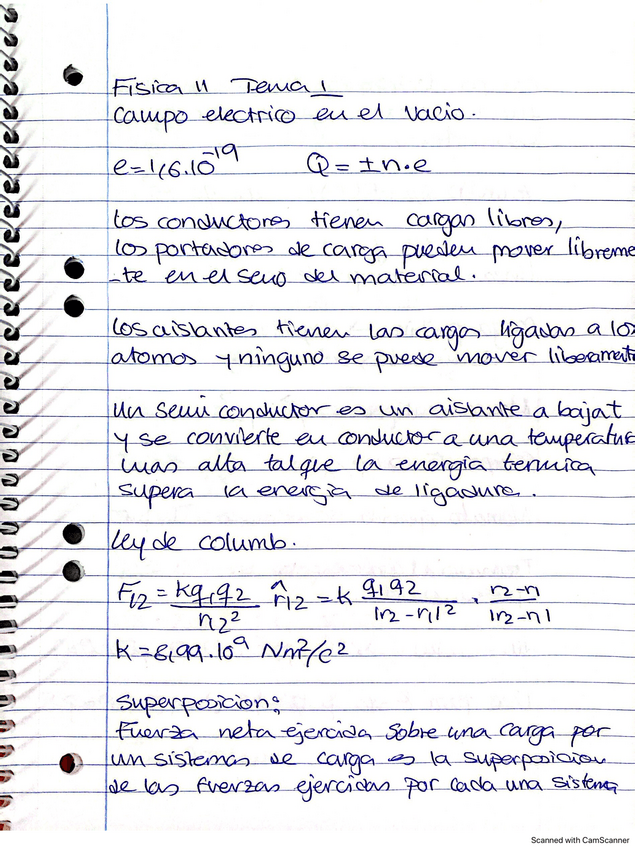 Fisica II Tema 1
Campo electrico en el vacio.
e=1,6.10^-19 Q = ±n.e
Los conductores tienen cargas libres,
los portadores de carga pueden mover libreme
-te en el seno del material.
Los aislantes tienen las cargas ligadas a los
atomos y ninguno se puede mover liberamente
Un semi conductor es un aislante a baja t
y se convierte en conductor a una temperatura
mas alta tal que la energia termica
supera la energia de ligadura.
Ley de columb.
F12 = kq1q2/r12² r̂12 = k q1q2/|r2-r1|² . r2-r1/|r2-r1|
k = 8,99.10^9 Nm²/c²
Superposicion:
Fuerza neta ejercida sobre una carga por
un sistemas de carga es la superposicion
de las fuerzas ejercidas por cada una sistema
Scanned with CamScanner